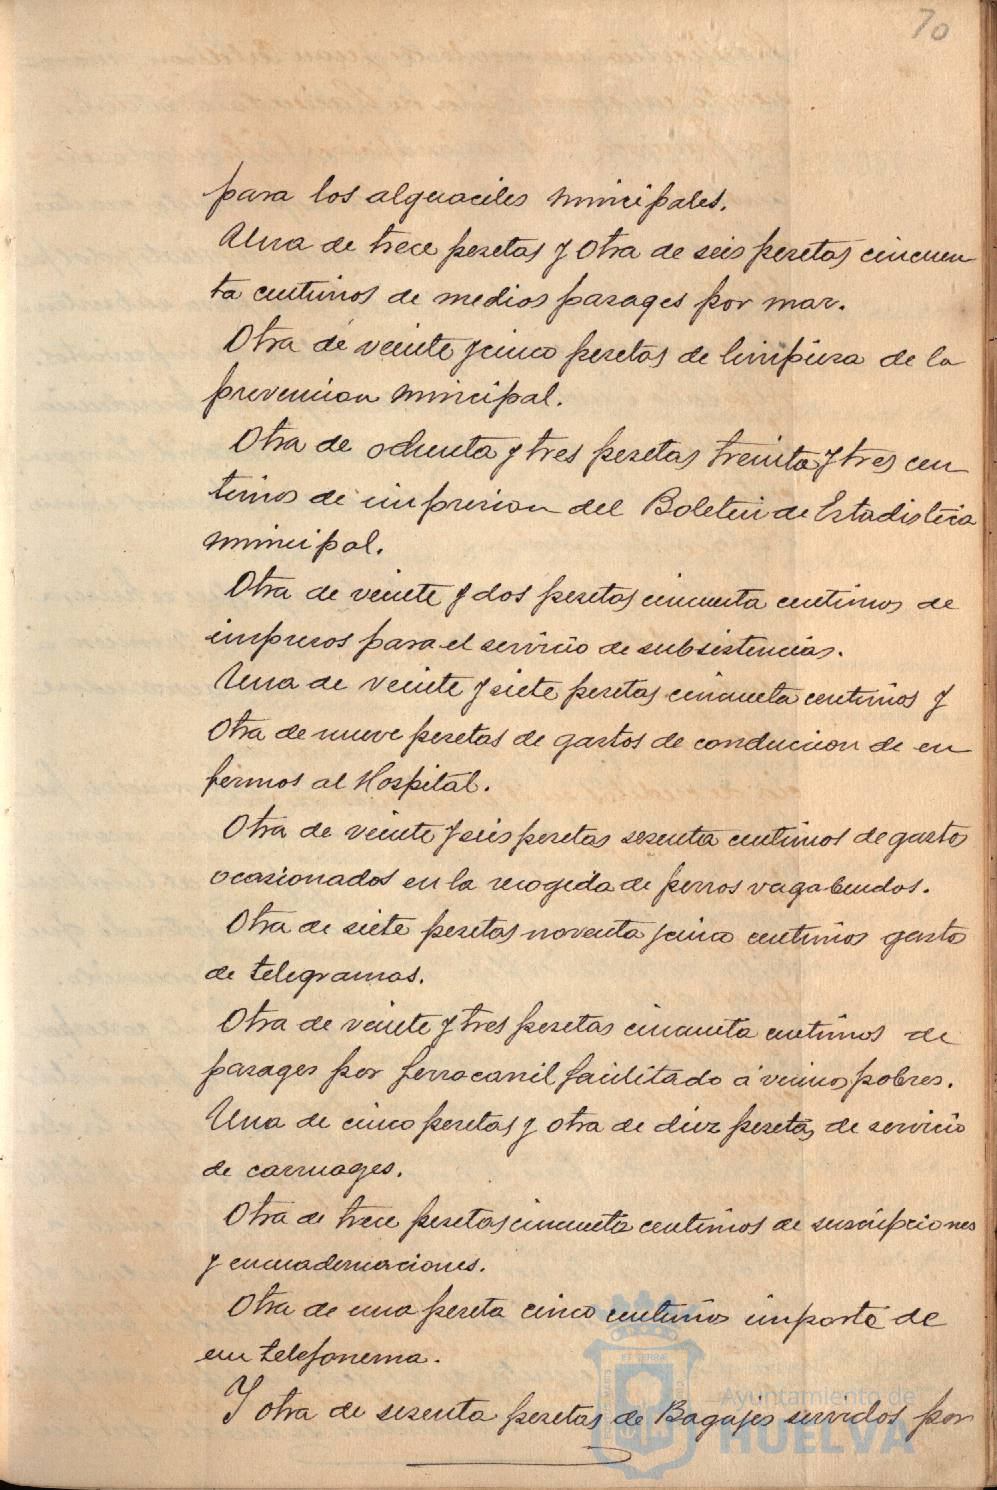 70
para los alguaciles municipales.
Una de trece pesetas y otra de seis pesetas cincuen
ta centimos de medios pasages por mar.
Otra de veinte y cinco pesetas de limpieza de la
prevencion municipal.
Otra de ochenta y tres pesetas treinta y tres cen
timos de impresion del Boletin de Estadistica
municipal.
Otra de veinte y dos pesetas cincuenta centimos de
impresos para el servicio de subsistencias.
Una de veinte y siete pesetas cincuenta centimos y
otra de nueve pesetas de gastos de conduccion de en
fermos al Hospital.
Otra de veinte y seis pesetas sesenta centimos de gastos
ocasionados en la recogida de perros vagabundos.
Otra de siete pesetas noventa y cinco centimos gasto
de telegramas.
Otra de veinte y tres pesetas cincuenta centimos de
pasages por ferrocarril facilitado á vecinos pobres.
Una de cinco pesetas y otra de diez pesetas de servicio
de carruages.
Otra de trece pesetas cincuenta centimos de suscripciones
y encuadernaciones.
Otra de una peseta cinco centimos importe de
un telefonema.
Y otra de sesenta pesetas de Bagajes servidos por
Ayuntamiento de
HUELVA